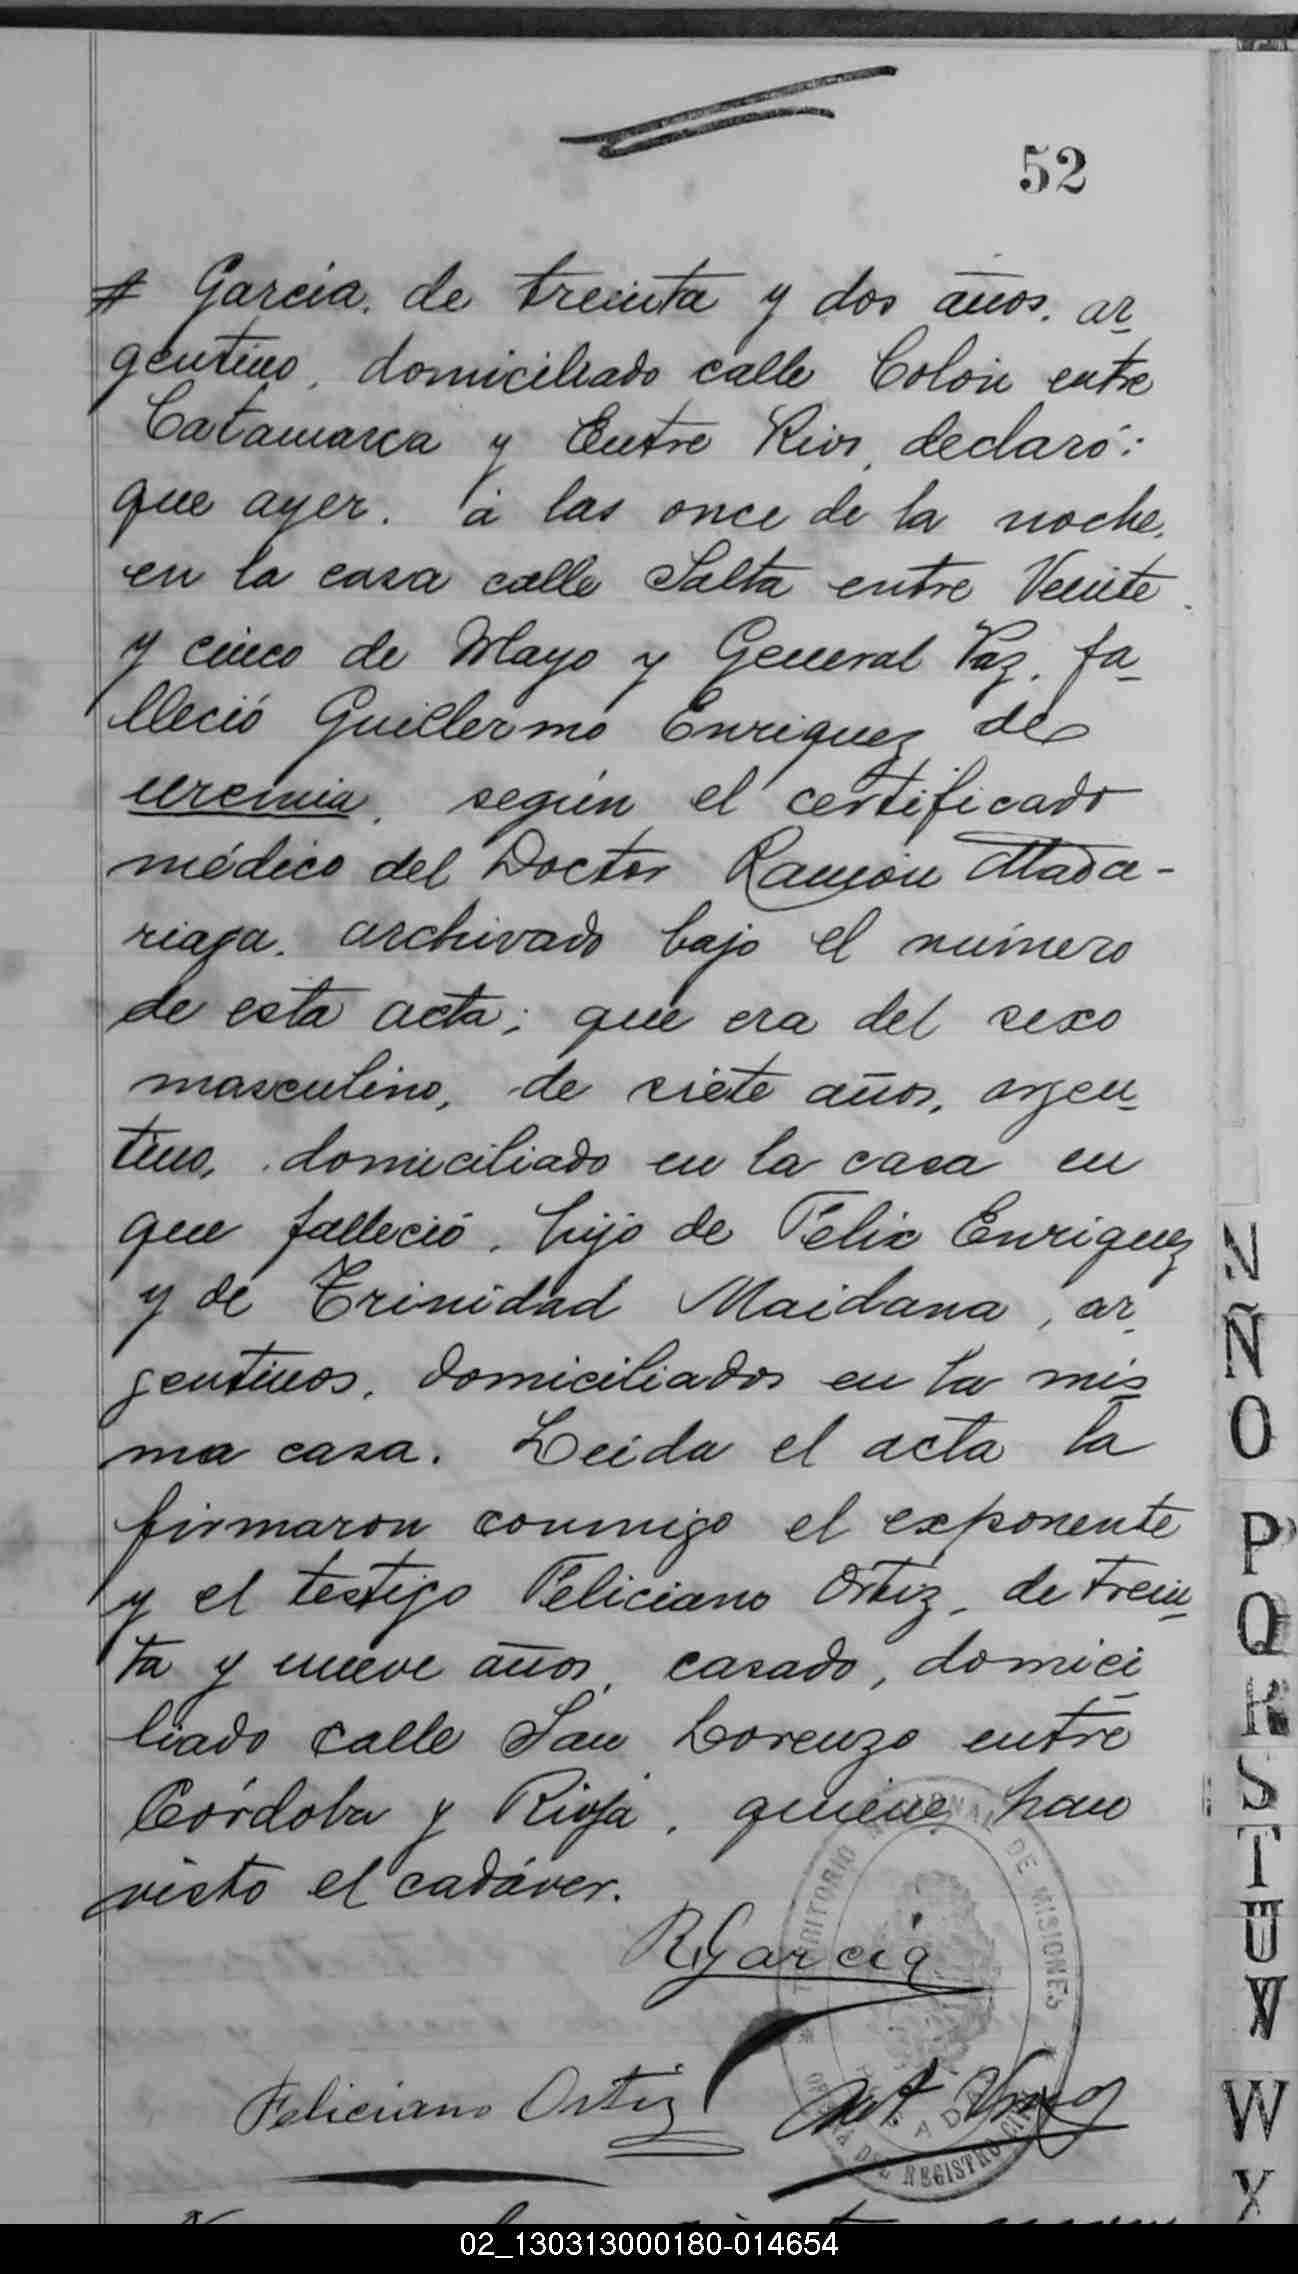 52
# García, de treinta y dos años, ar
gentino, domiciliado calle Colón entre
Catamarca y Entre Rios, declaró:
que ayer, á las once de la noche,
en la casa calle Salta entre Veinte
y cinco de Mayo y General Paz, fa-
lleció Guillermo Enriquez de
uremia, según el certificado
médico del Doctor Ramón Mada-
riaga, archivado bajo el número
de esta acta; que era del sexo
masculino, de siete años, argen-
tino, domiciliado en la casa en
que falleció, hijo de Felix Enriquez
y de Trinidad Maidana, ar
gentinos, domiciliados en la mis
ma casa. Leida el acta la
firmaron conmigo el exponente
y el testigo Feliciano Ortiz, de trein-
ta y nueve años, casado, domici
liado calle San Lorenzo entre
Córdoba y Rioja, quienes han
visto el cadáver.
R. García
Feliciano Ortiz
TERRITORIO NACIONAL DE MISIONES
OFICINA DEL REGISTRO CIVIL
POSADAS
N
Ñ
O
P
Q
R
S
T
U
V
W
X
02_130313000180-014654